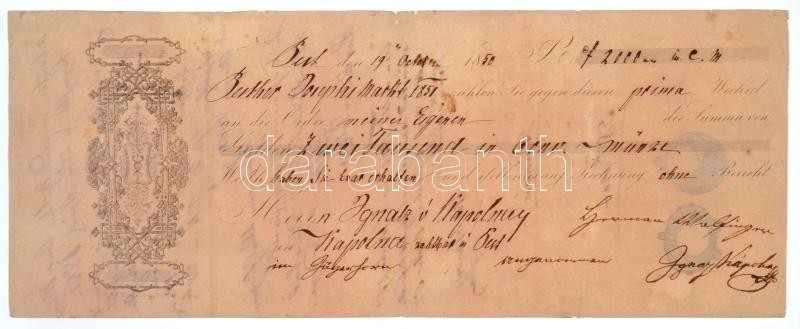 Pest den 19 October 1850 Pr f 2000 in C. M
Pesther Josephi Markt 1851 zahlen Sie gegen diesen prima Wechsel
an die Ordre meiner Eigenen die Summa von
Gulden Zwei Tausend in Conv = Münze
Werth haben Sie baar erhalten und stellen es auf Rechnung ohne Bericht
Herrn Ignatz v Kápolnay
Kapolna zahlbar in Pest
im Jägerhorn angenommen
Herman
Ignaz Kápolnay
darabanth